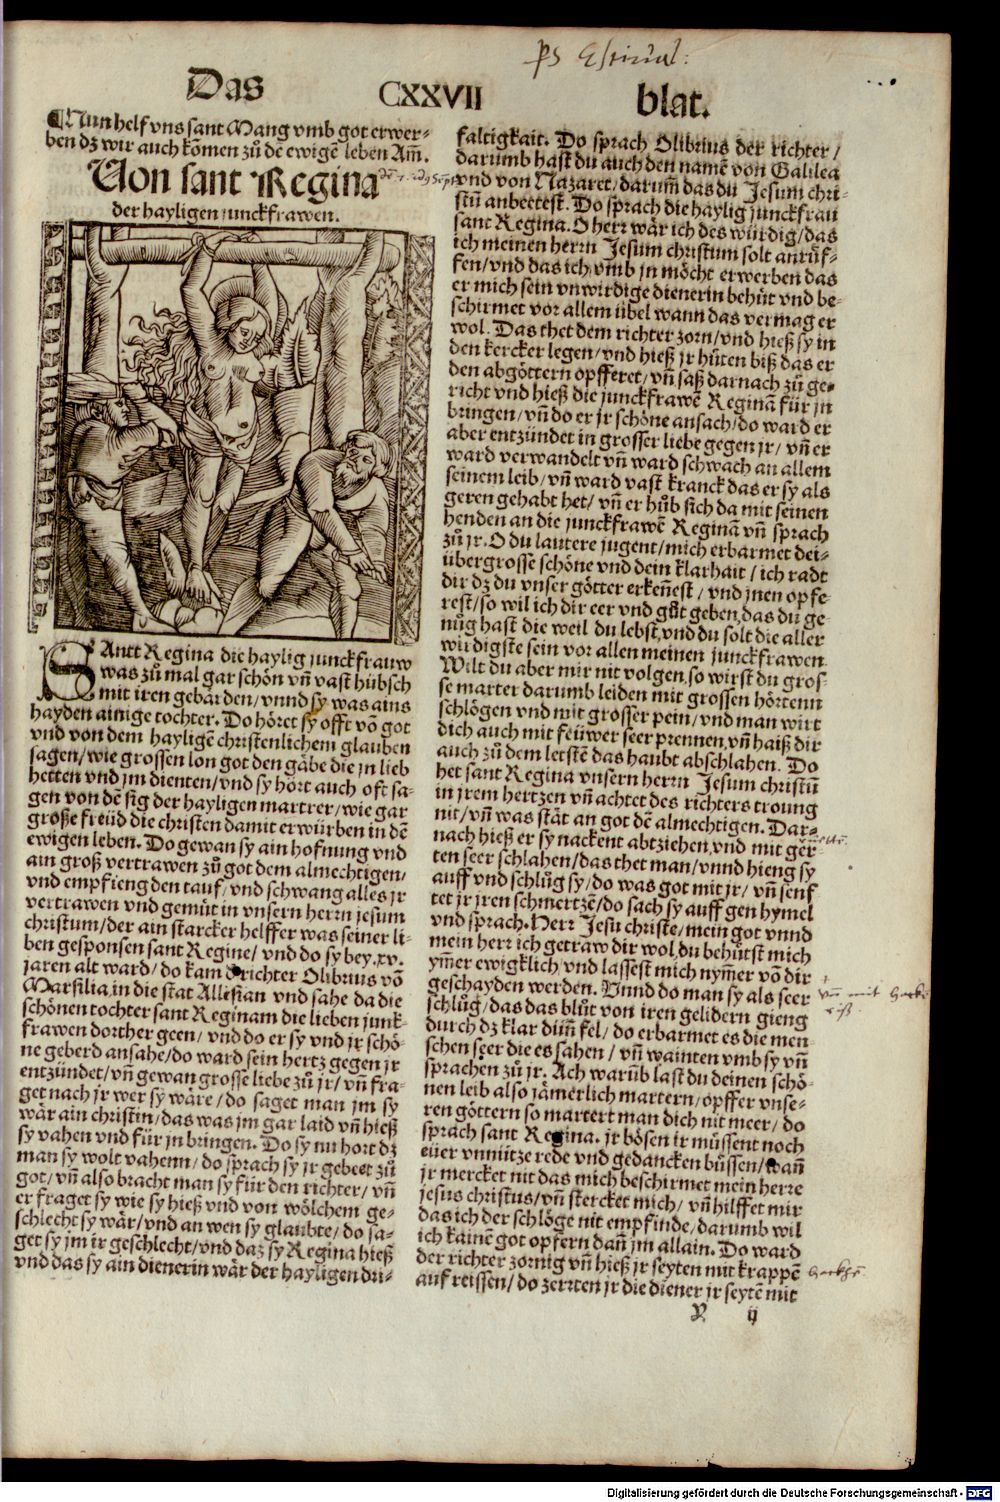 Das CXXVII blat.
¶Nun helf vns sant Mang vmb got erwer⸗
ben dz wir auch kõmen zů dẽ ewigẽ leben Am̃.
Von sant Regina
der hayligen junckfrawen.
SAntt Regina die haylig junckfrauw
was zů mal gar schön vñ vast hübsch
mit iren gebärden/vnnd sy was ains
hayden ainige tochter. Do höret sy offt võ got
vnd von dem hayligẽ christenlichem glauben
sagen/wie grossen lon got den gäbe die jn lieb
hetten vnd jm dienten/vnd sy hört auch oft sa⸗
gen von dẽ sig der hayligen martrer/wie gar
große freüd die christen damit erwürben in dẽ
ewigen leben. Do gewan sy ain hofnung vnd
ain groß vertrawen zů got dem almechtigen/
vnd empfieng den tauf/vnd schwang alles jr
vertrawen vnd gemüt in vnsern herrn jesum
christum/der ain starcker helffer was seiner li⸗
ben gesponsen sant Regine/vnd do sy bey .xv.
jaren alt ward/do kam d richter Olibrius võ
Marsilia in die stat Allisian vnd sahe da die
schönen tochter sant Reginam die lieben junk⸗
frawen dorther geen/vnd do er sy vnd jr schö⸗
ne geberd ansahe/do ward sein hertz gegen jr
entzündet/vñ gewan grosse liebe zů jr/vñ fra⸗
get nach jr wer sy wäre/do saget man jm sy
wär ain christin/das was jm gar laid vñ hieß
sy vahen vnd für in bringen. Do sy nu hort dz
man sy wolt vahenn/do sprach sy jr gebeet zů
got/vñ also bracht man sy für den richter/vñ
er fraget sy wie sy hieß vnd von wölchem ge⸗
schlecht sy wär/vnd an wen sy glaubte/do sa⸗
get sy jm ir geschlecht/vnd daz sy Regina hieß
vnd das sy ain dienerin wär der hayligen dri⸗
faltigkait. Do sprach Olibrius der richter/
darumb hast du auch den namẽ von Galilea
vnd von Nazaret/darum̃ das du Jesum chri⸗
stũ anbeetest. Do sprach die haylig junckfrau
sant Regina. O herr wär ich des würdig/das
ich meinen herrn Jesum christum solt anrüf⸗
fen/vnd das ich vmb jn möcht erwerben das
er mich sein vnwirdige dienerin behüt vnd be⸗
schirmet vor allem übel wann das vermag er
wol. Das thet dem richter zorn/vnd hieß sy in
den kercker legen/vnd hieß jr hüten biß das er
den abgöttern opfferet/vñ saß darnach zů ge⸗
richt vnd hieß die junckfrawẽ Reginã für jn
bringen/vñ do er jr schöne ansach/do ward er
aber entzündet in grosser liebe gegen jr/vñ er
ward verwandelt vñ ward schwach an allem
seinem leib/vñ ward vast kranck das er sy als
geren gehabt het/vñ er hůb sich da mit seinen
henden an die junckfrawẽ Reginã vñ sprach
zů jr. O du lautere jugent/mich erbarmet dei⸗
übergrosse schöne vnd dein klarhait/ich radt
dir dz du vnser götter erkeñest/vnd jnen opfe⸗
rest/so wil ich dir eer vnd gůt geben das du ge⸗
nůg hast die weil du lebst vnd du solt die aller
wirdigste sein vor allen meinen junckfrawen
Wilt du aber mir nit volgen so wirst du gros⸗
se marter darumb leiden mit grossen hörtenn
schlögen vnd mit grosser pein/vnd man wirt
dich auch mit feüwer seer prennen vñ haiß dir
auch zů dem letstẽ das haubt abschlahen. Do
het sant Regina vnsern herrn Jesum christũ
in jrem hertzen vñ achtet des richters troung
nit/vñ was stät an got dẽ almechtigen. Dar⸗
nach hieß er sy nackent abtziehen vnd mit gerr̃⸗
ten seer schlahen/das thet man/vnnd hieng sy
auff vnd schlůg sy/do was got mit jr/vñ senf
tet jr jren schmertzẽ/do sach sy auff gen hymel
vnd sprach. Herr Jesu christe/mein got vnnd
mein herr ich getraw dir wol du behütst mich
ym̃er ewigklich/vnd lassest mich nym̃er võ dir
geschayden werden. Vnnd do man sy als seer
schlůg/das das blůt von iren gelidern gieng
durch dz klar dim̃ fel/do erbarmet es die men⸗
schen seer die es sahen/vñ wainten vmb sy vñ
sprachen zů jr. Ach warũb last du deinen schö⸗
nen leib also jämerlich martern/opffer vnse⸗
ren göttern so martert man dich nit meer/do
sprach sant Regina. jr bösen ir müssent noch
eüer vnnütze rede vnd gedancken büssen/wañ
jr mercket nit das mich beschirmet mein herre
jesus christus/vñ stercket mich/vñ hilffet mir
das ich der schlöge nit empfinde/darumb wil
ich kainẽ got opfern dañ jm allain. Do ward
der richter zornig vñ hieß jr seyten mit krappẽ
auf reissen/do zerrten jr die diener jr seytẽ mit
y ij
Digitalisierung gefördert durch die Deutsche Forschungsgemeinschaft - DFG